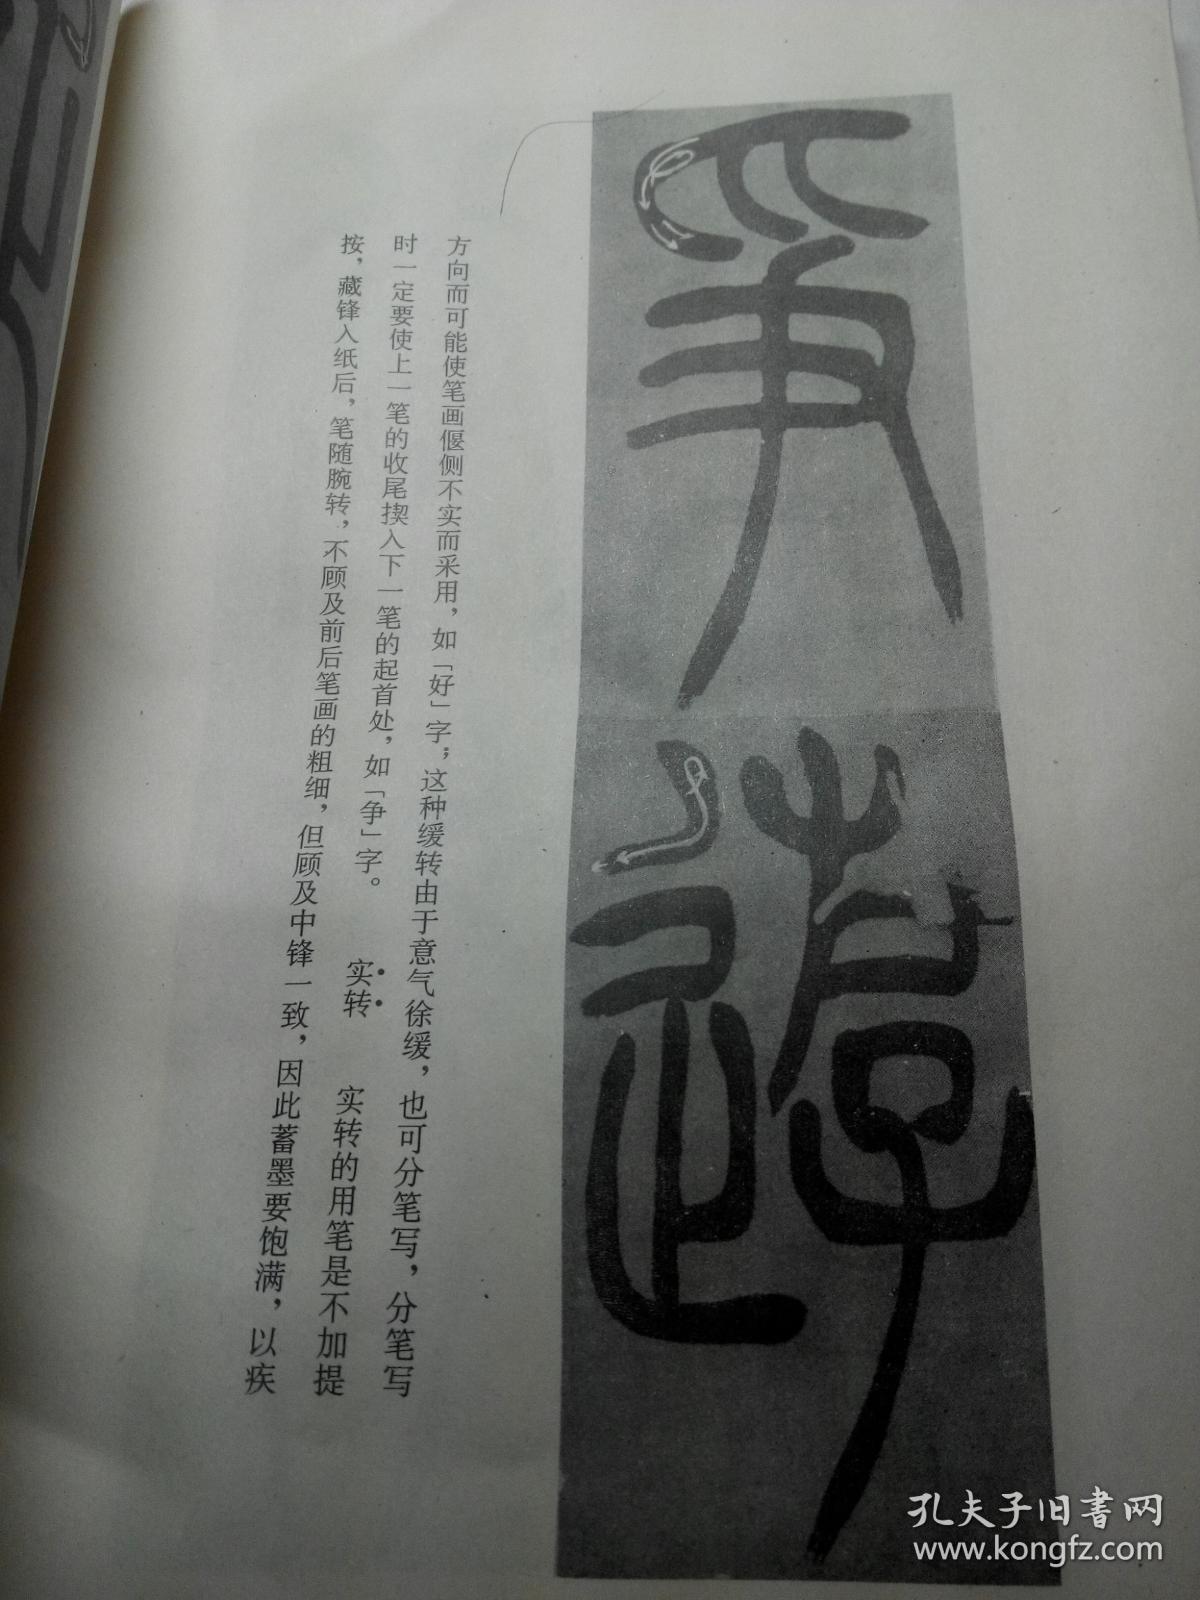 爭遊
方向而可能使笔画偃侧不实而采用，如「好」字；这种缓转由于意气徐缓，也可分笔写，分笔写
时一定要使上一笔的收尾揳入下一笔的起首处，如「争」字。　实转　实转的用笔是不加提
按，藏锋入纸后，笔随腕转，不顾及前后笔画的粗细，但顾及中锋一致，因此蓄墨要饱满，以疾
孔夫子旧书网
www.kongfz.com